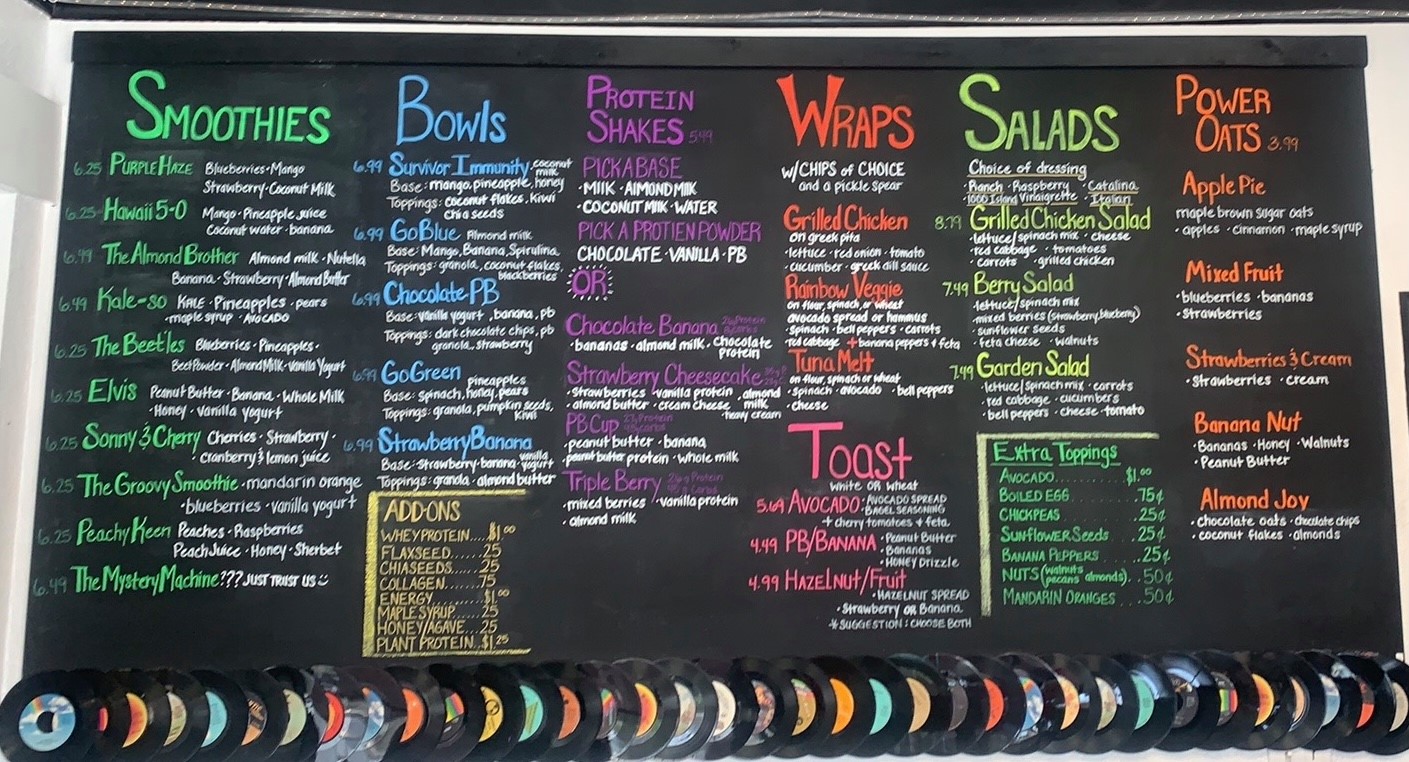 SMOOTHIES
6.25 PURPLE HAZE Blueberries · Mango
Strawberry · Coconut Milk
6.25 Hawaii 5-0 Mango · Pineapple juice
Coconut water · banana
6.49 The Almond Brother Almond milk · Nutella
Banana · Strawberry · Almond Butter
6.49 Kale-so KALE · Pineapples · pears
· maple syrup · AVOCADO
6.25 The Beetles Blueberries · Pineapples ·
Beet Powder · Almond Milk · Vanilla Yogurt
6.25 ELVIS Peanut Butter · Banana · Whole Milk
· Honey · Vanilla yogurt
6.25 Sonny & Cherry Cherries · Strawberry ·
· Cranberry & lemon juice
6.25 The Groovy Smoothie · mandarin orange
· blueberries · vanilla yogurt
6.25 Peachy Keen Peaches · Raspberries
Peach Juice · Honey · Sherbet
6.49 The Mystery Machine??? JUST TRUST US
BOWLS
6.99 Survivor Immunity · coconut milk
Base: mango, pineapple, honey
Toppings: coconut flakes, kiwi
chia seeds
6.99 GoBlue Almond milk
Base: Mango, Banana, Spirulina
Toppings: granola, coconut flakes,
blackberries
6.99 Chocolate PB
Base: vanilla yogurt, banana, pb
Toppings: dark chocolate chips, pb
granola, strawberry
6.99 GoGreen pineapples
Base: spinach, honey, pears
Toppings: granola, pumpkin seeds,
kiwi
6.99 Strawberry Banana
Base: strawberry · banana vanilla yogurt
Toppings: granola · almond butter
ADD-ONS
WHEY PROTEIN....$1.00
FLAXSEED......25
CHIASEEDS.....25
COLLAGEN.....75
ENERGY........$1.00
MAPLE SYRUP......25
HONEY/AGAVE...25
PLANT PROTEIN...$1.25
PROTEIN
SHAKES 5.49
PICK A BASE
· MILK · ALMOND MILK
· COCONUT MILK · WATER
PICK A PROTIEN POWDER
CHOCOLATE · VANILLA · PB
OR
Chocolate Banana
· bananas · almond milk · chocolate
protein
Strawberry Cheesecake
· Strawberries · vanilla protein · almond
· almond butter · cream cheese milk
· heavy cream
PB Cup
· peanut butter · banana
· peanut butter protein · whole milk
Triple Berry
· mixed berries · vanilla protein
· almond milk
WRAPS
W/CHIPS of CHOICE
and a pickle spear
Grilled Chicken
on greek pita
· lettuce · red onion · tomato
· cucumber · greek dill sauce
Rainbow Veggie
on flour, spinach, or wheat
avocado spread or hummus
· spinach · bell peppers · carrots
· red cabbage + banana peppers + feta
Tuna Melt
on flour, spinach or wheat
· spinach · avocado · bell peppers
· cheese
TOAST
WHITE OR WHEAT
5.69 AVOCADO · AVOCADO SPREAD
· BAGEL SEASONING
+ cherry tomatoes + feta
4.49 PB/BANANA · Peanut Butter
· Bananas
· HONEY Drizzle
4.99 HAZELNUT/FRUIT
· HAZELNUT SPREAD
· Strawberry OR Banana
*SUGGESTION: CHOOSE BOTH
SALADS
Choice of dressing
· Ranch · Raspberry Vinaigrette · Catalina
· 1000 Island · Italian
8.79 Grilled Chicken Salad
· lettuce/spinach mix · cheese
· red cabbage · tomatoes
· carrots · grilled chicken
7.49 Berry Salad
· lettuce/spinach mix
· mixed berries (strawberry, blueberry)
· sunflower seeds
· feta cheese · walnuts
7.49 Garden Salad
· lettuce/spinach mix · carrots
· red cabbage · cucumbers
· bell peppers · cheese · tomato
EXTRA TOPPINGS
AVOCADO..........$1.00
BOILED EGG........75¢
CHICKPEAS........25¢
Sunflower Seeds ...25¢
BANANA PEPPERS ...25¢
NUTS (walnuts pecans almonds)..50¢
MANDARIN ORANGES ...50¢
POWER
OATS 3.99
Apple Pie
maple brown sugar oats
· apples · cinnamon · maple syrup
Mixed Fruit
· blueberries · bananas
· strawberries
Strawberries & Cream
· strawberries · cream
Banana Nut
· Bananas · Honey · Walnuts
· Peanut Butter
Almond Joy
· chocolate oats · chocolate chips
· coconut flakes · almonds